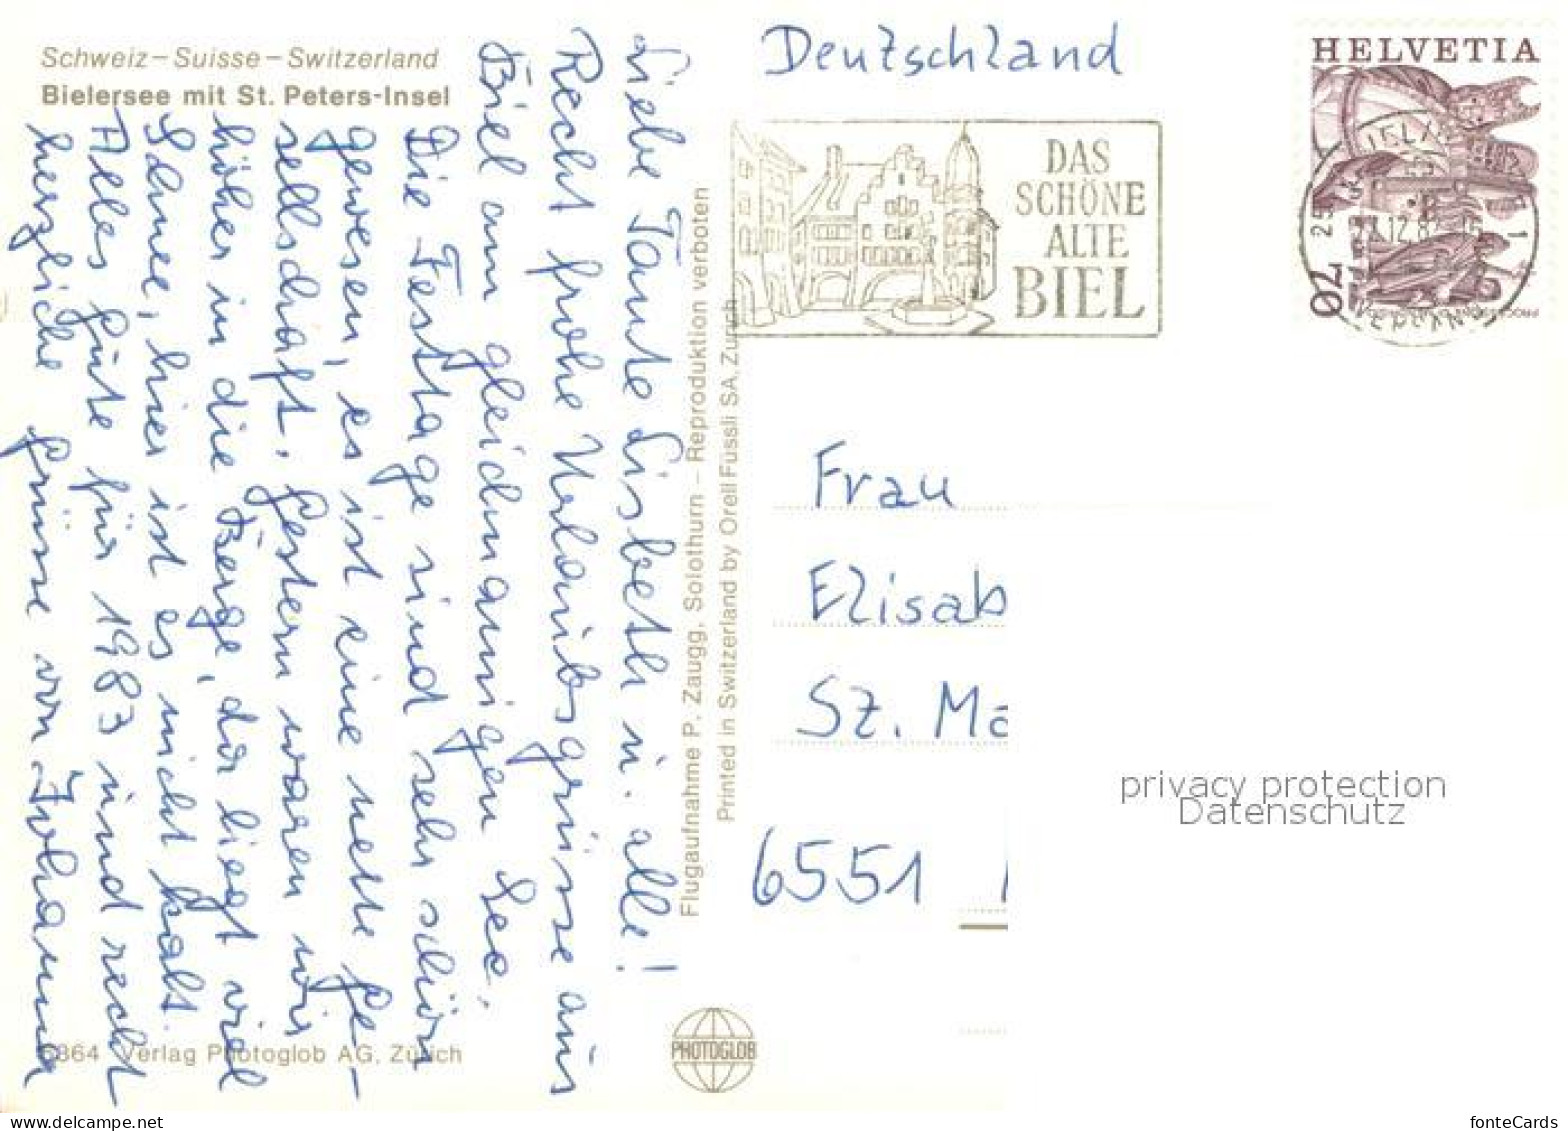 Schweiz – Suisse – Switzerland
Bielersee mit St. Peters-Insel
Liebe Tante Lisbeth u. alle!
Recht frohe Urlaubsgrüsse aus
Biel am gleichnamigen See.
Die Festtage sind sehr schön
gewesen, es ist eine nette Ge-
sellschaft. Gestern waren wir
höher in die Berge, dor liegt viel
Schnee, hier ist es nicht kalt.
Alles Gute für 1983 und recht
herzliche Grüsse von Johanna
6864 Verlag Photoglob AG, Zürich
Flugaufnahme P. Zaugg, Solothurn – Reproduktion verboten
Printed in Switzerland by Orell Füssli SA, Zürich
PHOTOGLOB
Deutschland
DAS
SCHÖNE
ALTE
BIEL
HELVETIA
70
12.82
Frau
Elisab
Sz. Ma
6551
privacy protection
Datenschutz
fonteCards